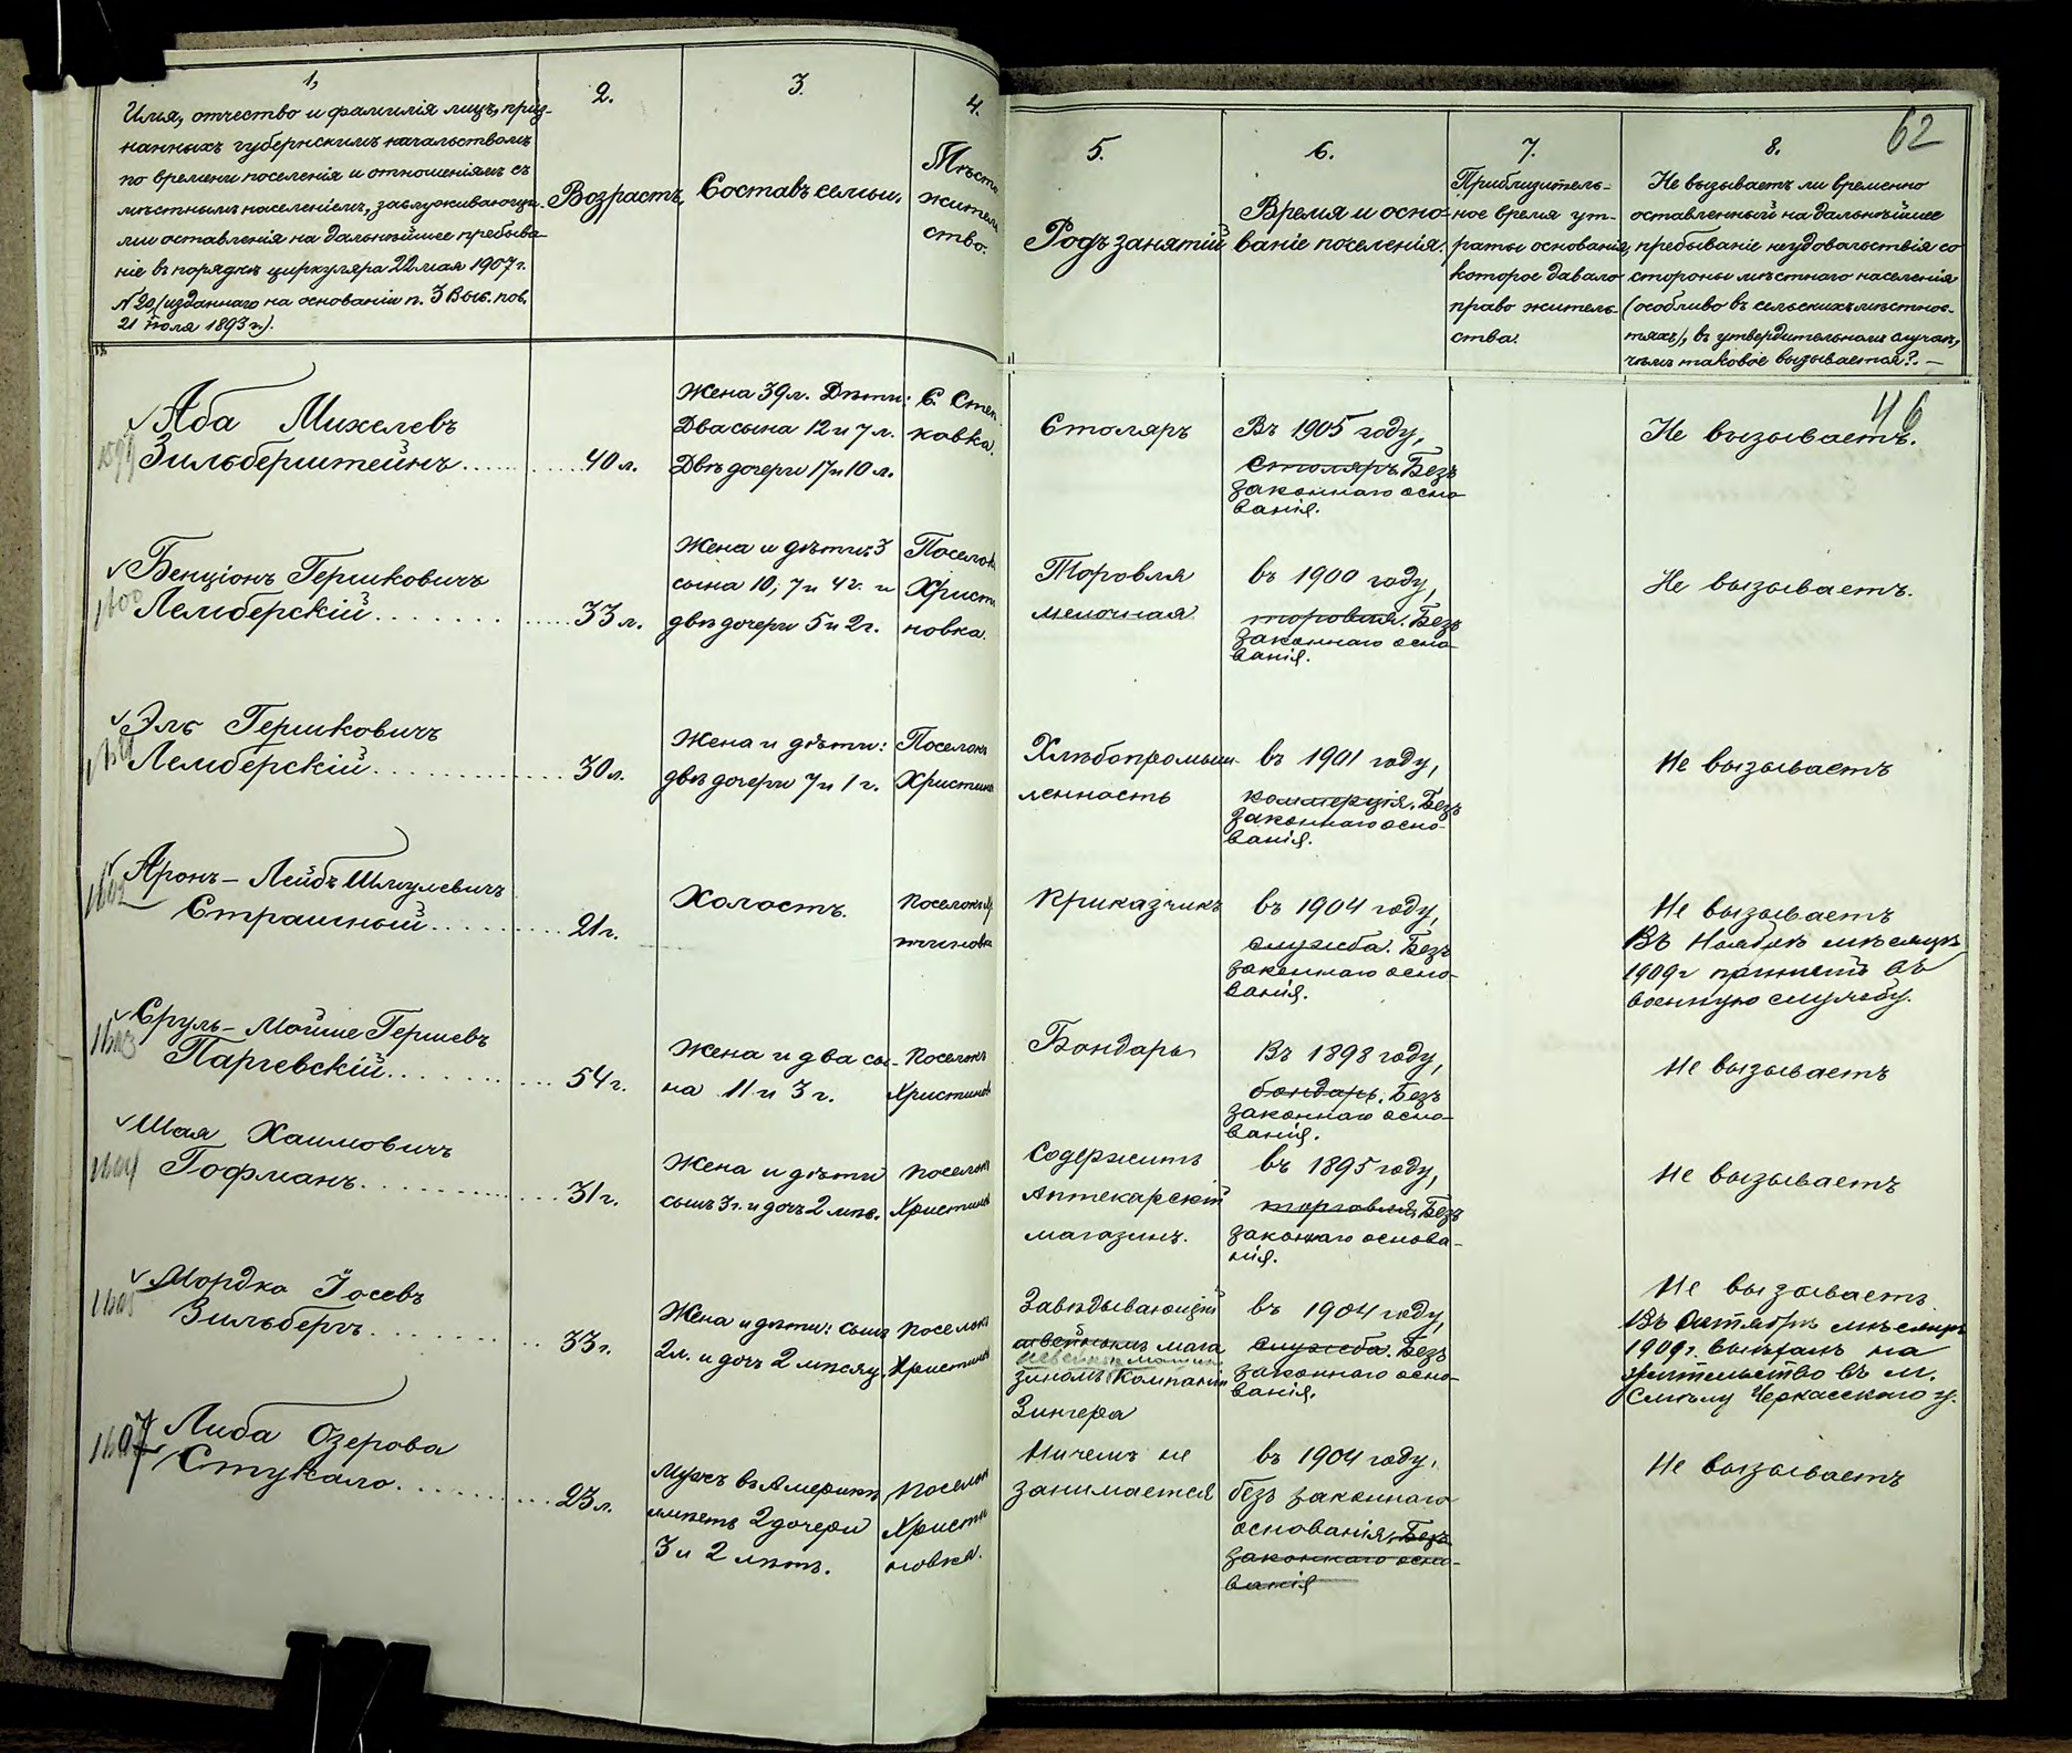 62
1,
Имя, отчество и фамилія лицъ, приз-
нанныхъ губернскимъ начальствомъ
по времени поселенія и отношеніямъ съ
мѣстнымъ населеніемъ, заслуживающи-
ми оставленія на дальнѣйшее пребыва-
ніе въ порядкѣ циркуляра 22 мая 1907 г.
№ 20 (изданнаго на основаніи п. 3 Выс. пов.
21 Іюля 1893 г.).
2.
Возрастъ,
3.
Составъ семьи,
4.
Мѣсто
житель
ство.
5.
Родъ занятій
6.
Время и осно-
ваніе поселенія.
7.
Приблизитель-
ное время ут-
раты основанія,
которое давало
право житель-
ства.
8.
Не вызываетъ ли временно
оставленный на дальнѣйшее
пребываніе неудовольствія со
стороны мѣстнаго населенія
(особливо въ сельскихъ мѣстнос-
тяхъ), въ утвердительномъ случаѣ,
чѣмъ таковое вызывается?. —
46
1599
Аба Михелевъ
Зильберштейнъ
40 л.
Жена 39 л. Дѣти:
Два сына 12 и 7 л.
Двѣ дочери 17 и 10 л.
С. Степ
ковка.
Столяръ
Въ 1905 году,
столяръ. Безъ
законнаго осно-
ванія.
Не вызываетъ.
1600
Бенціонъ Гершковичъ
Лемберскій
33 л.
Жена и дѣти: 3
сына 10, 7 и 4 г. и
двѣ дочери 5 и 2 г.
Поселокъ
Христи
новка.
Торовля
мелочная
въ 1900 году,
торовля. Безъ
законнаго осно-
ванія.
Не вызываетъ.
Эль Гершковичъ
Лемберскій
30 л.
Жена и дѣти:
двѣ дочери 7 и 1 г.
Поселокъ
Христин
Хлѣбопромыш-
ленность
въ 1901 году,
коммерція. Безъ
законнаго осно-
ванія.
Не вызываетъ
1602
Аронъ-Лейбъ Шмулевичъ
Страшный
21 г.
Холостъ.
Поселокъ Хр
стиновка
Приказчикъ
въ 1904 году,
служба. Безъ
законнаго осно-
ванія.
Не вызываетъ
Въ Ноябрѣ мѣсяцѣ
1909 г принятъ въ
военную службу.
1603
Сруль-Мойше Гершевъ
Паргевскій
54 г.
Жена и два сы-
на 11 и 3 г.
Поселокъ
Христинов
Бондарь
Въ 1898 году,
бондарь. Безъ
законнаго осно-
ванія.
Не вызываетъ
1604
Шая Хаимовичъ
Гофманъ
31 г.
Жена и дѣти
сынъ 3 г. и дочь 2 мѣс.
Поселокъ
Христинов
Содержитъ
Аптекарскій
магазинъ.
въ 1895 году,
торговля. Безъ
законнаго основа-
нія.
Не вызываетъ
1605
Мордко Іосевъ
Зильбергъ
33 г.
Жена и дѣти: сынъ
2 л. и дочь 2 мѣсяц.
Поселокъ
Христинов
Завѣдывающій
швейнымъ мага
зиномъ Компаніи
Зингера
въ 1904 году,
служба. Безъ
законнаго осно-
ванія.
Не вызываетъ
Въ Октябрѣ мѣсяцѣ
1909 г. выѣхалъ на
жительство въ м.
Смѣлу Черкасскаго у.
1607
Либа Озерова
Стукало
23 л.
Мужъ въ Америкѣ,
имѣетъ 2 дочери
3 и 2 лѣтъ.
Поселок
Христи
новка.
Ничемъ не
занимается
въ 1904 году,
безъ законнаго
основанія. Безъ
законнаго осно-
ванія
Не вызываетъ